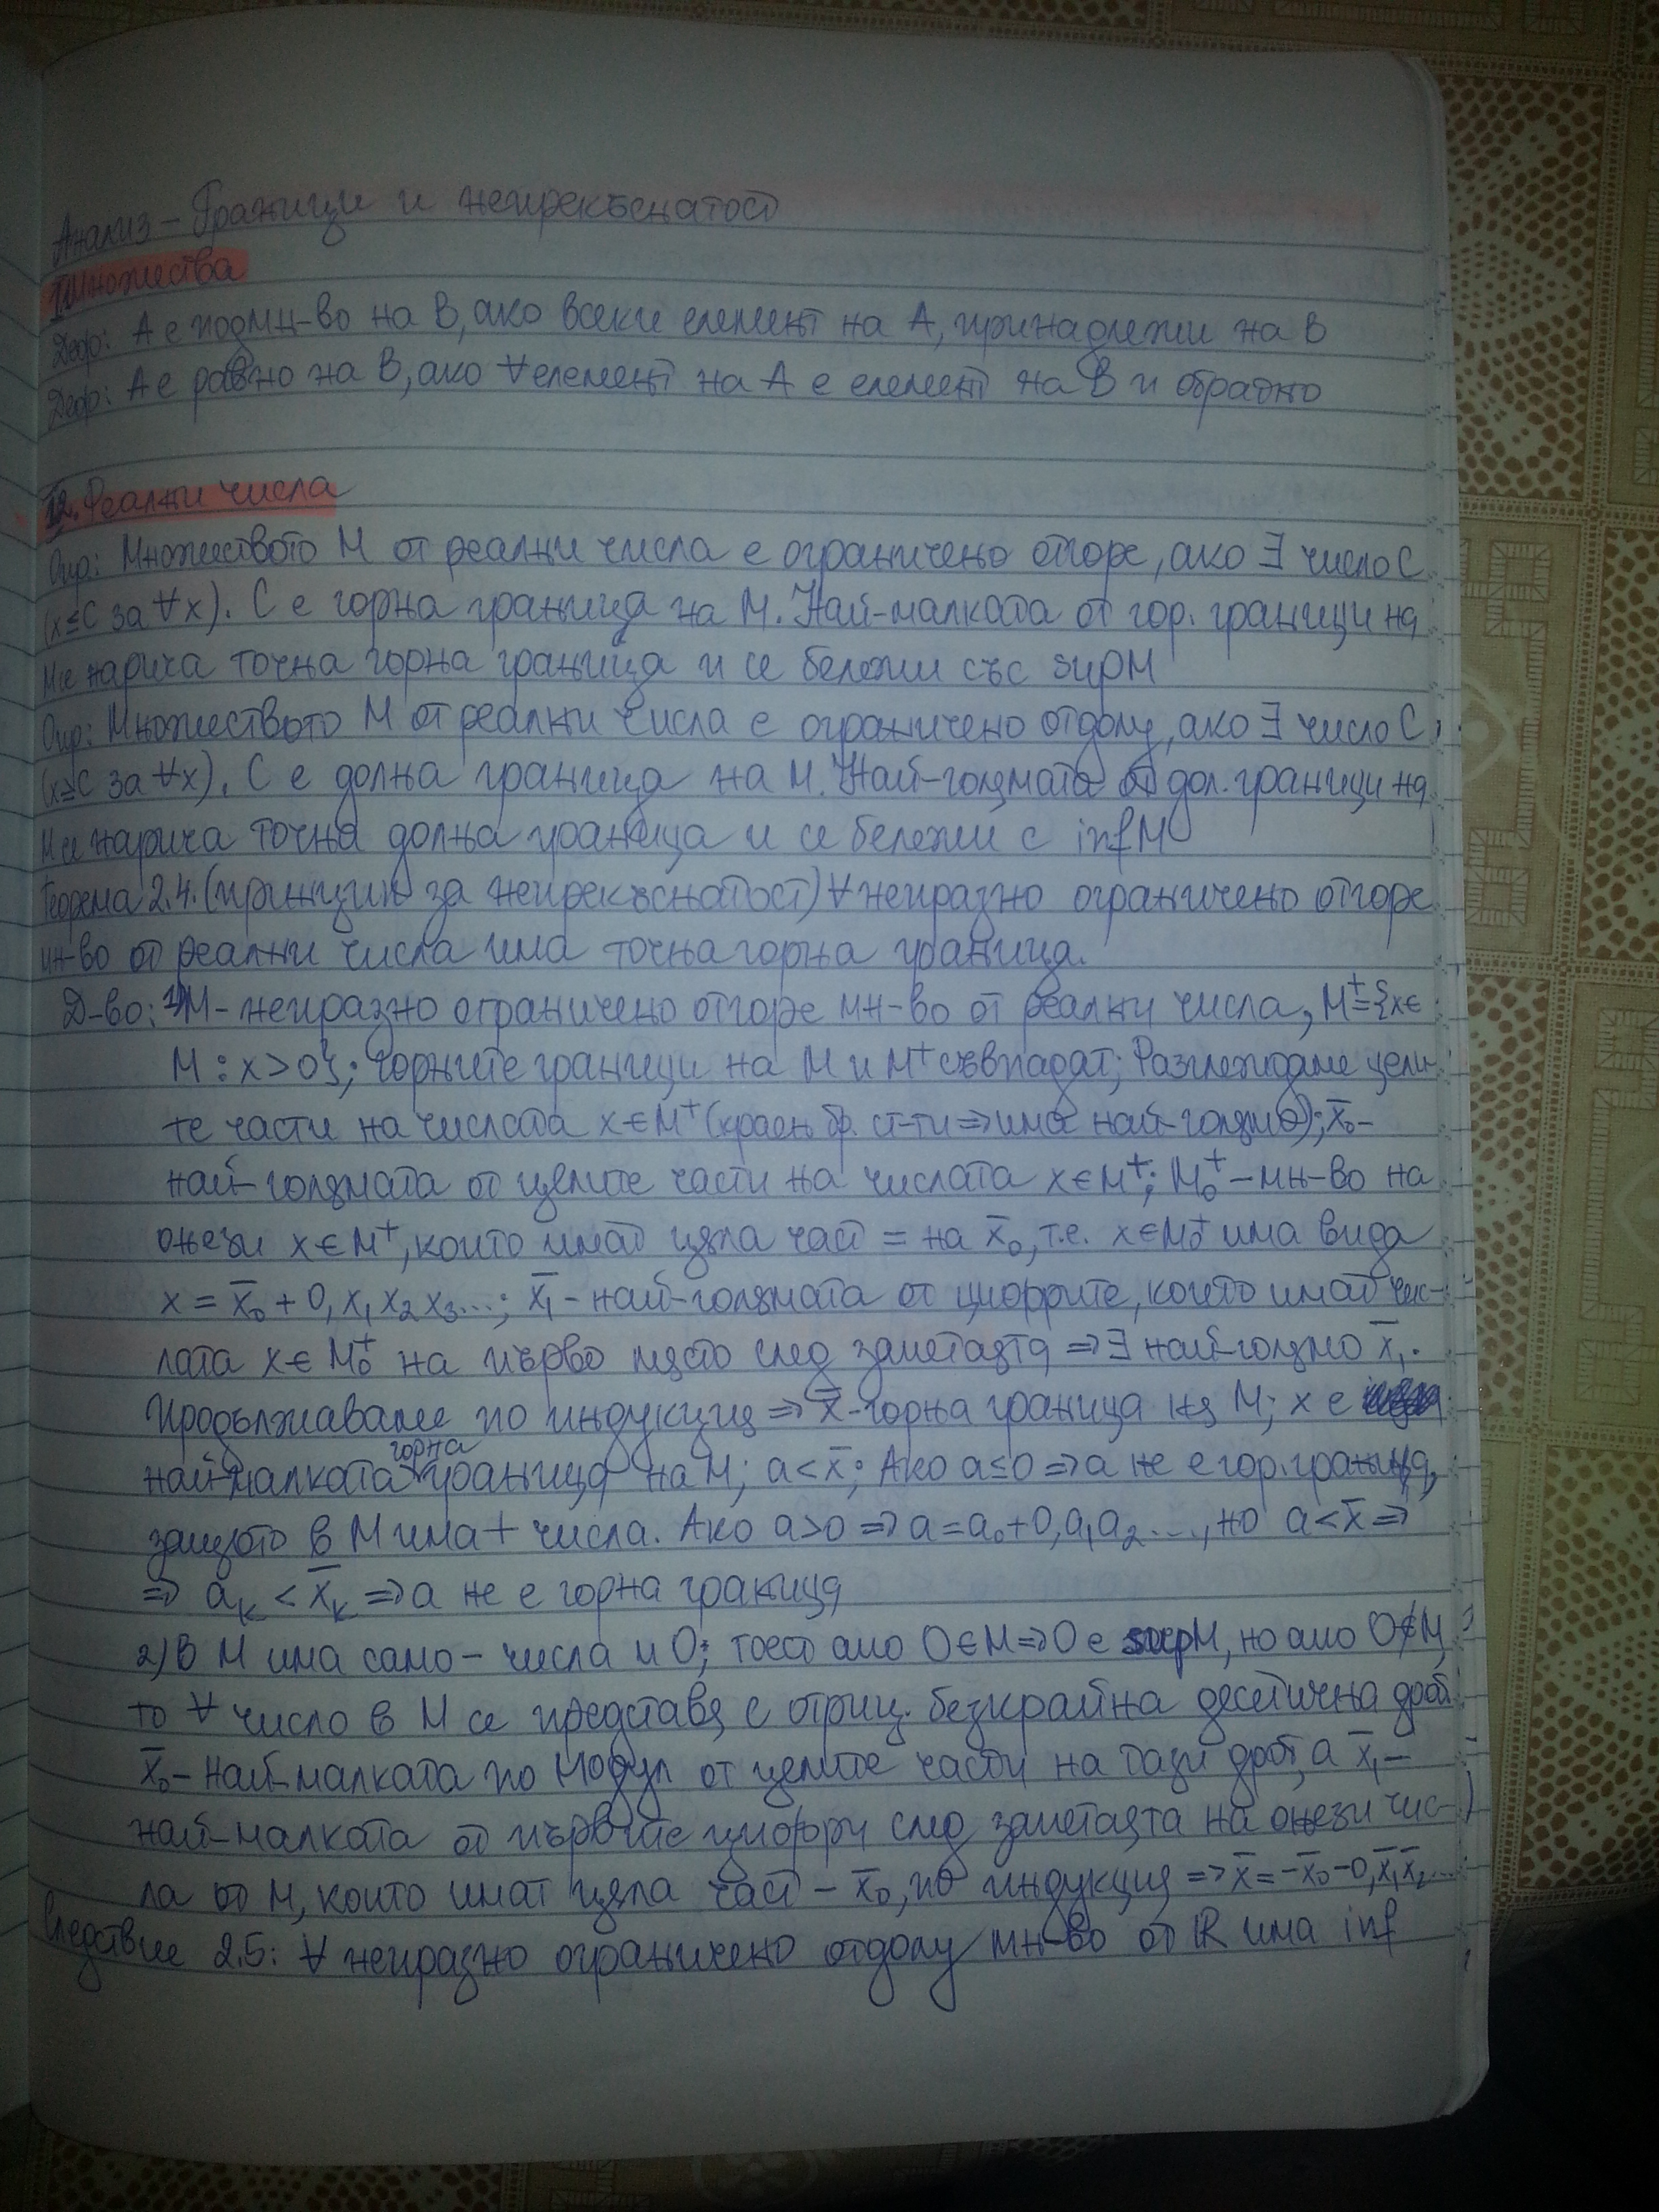 Анализ – Граници и непрекъснатост
I. Множества
Деф: А е подмн-во на В, ако всеки елемент на А, принадлежи на В
Деф: А е равно на В, ако ∀ елемент на А е елемент на В и обратно
I2. Реални числа
Опр: Множеството М от реални числа е ограничено отгоре, ако ∃ число С
(x≤C за ∀x). С е горна граница на М. Най-малката от гор. граници на
М се нарича точна горна граница и се бележи със supM
Опр: Множеството М от реални числа е ограничено отдолу, ако ∃ число С
(x≥C за ∀x). С е долна граница на М. Най-голямата от дол. граници на
М се нарича точна долна граница и се бележи с infM
Теорема 2.4. (принцип за непрекъснатост) ∀ непразно ограничено отгоре
мн-во от реални числа има точна горна граница.
Д-во: 1) М - непразно ограничено отгоре мн-во от реални числа, M⁺={x∈
M : x>0}; Горните граници на М и М⁺ съвпадат; Разглеждаме цели-
те части на числата x∈M⁺ (краен бр. ст-ти ⇒ има най-голямо); x̄₀ –
най-голямата от целите части на числата x∈M⁺; M₀⁺ – мн-во на
онези x∈M⁺, които имат цяла част = на x̄₀, т.е. x∈M₀⁺ има вида
x = x̄₀ + 0, x₁ x₂ x₃...; x̄₁ - най-голямата от цифрите, които имат чис-
лата x∈M₀⁺ на първо място след запетаята ⇒ ∃ най-голямо x̄₁.
Продължаваме по индукция ⇒ x̄ - горна граница на М; x е
най-малката горна граница на М; a < x̄; Ако a≤0 ⇒ a не е гор. граница,
защото в М има + числа. Ако a>0 ⇒ a = a₀+0,a₁a₂..., но a < x̄ ⇒
⇒ aₖ < x̄ₖ ⇒ a не е горна граница
2) В М има само – числа и 0; тоест ако 0∈M ⇒ 0 е supM, но ако 0∉M,
то ∀ число в М се представя с отриц. безкрайна десетична дроб
x̄₀ – най-малката по модул от целите части на тази дроб, а x̄₁ –
най-малката от първите цифри след запетаята на онези чис-
ла от М, които имат цяла част – x̄₀, по индукция ⇒ x̄ = -x̄₀-0,x̄₁x̄₂...
Следствие 2.5: ∀ непразно ограничено отдолу мн-во от ℝ има inf